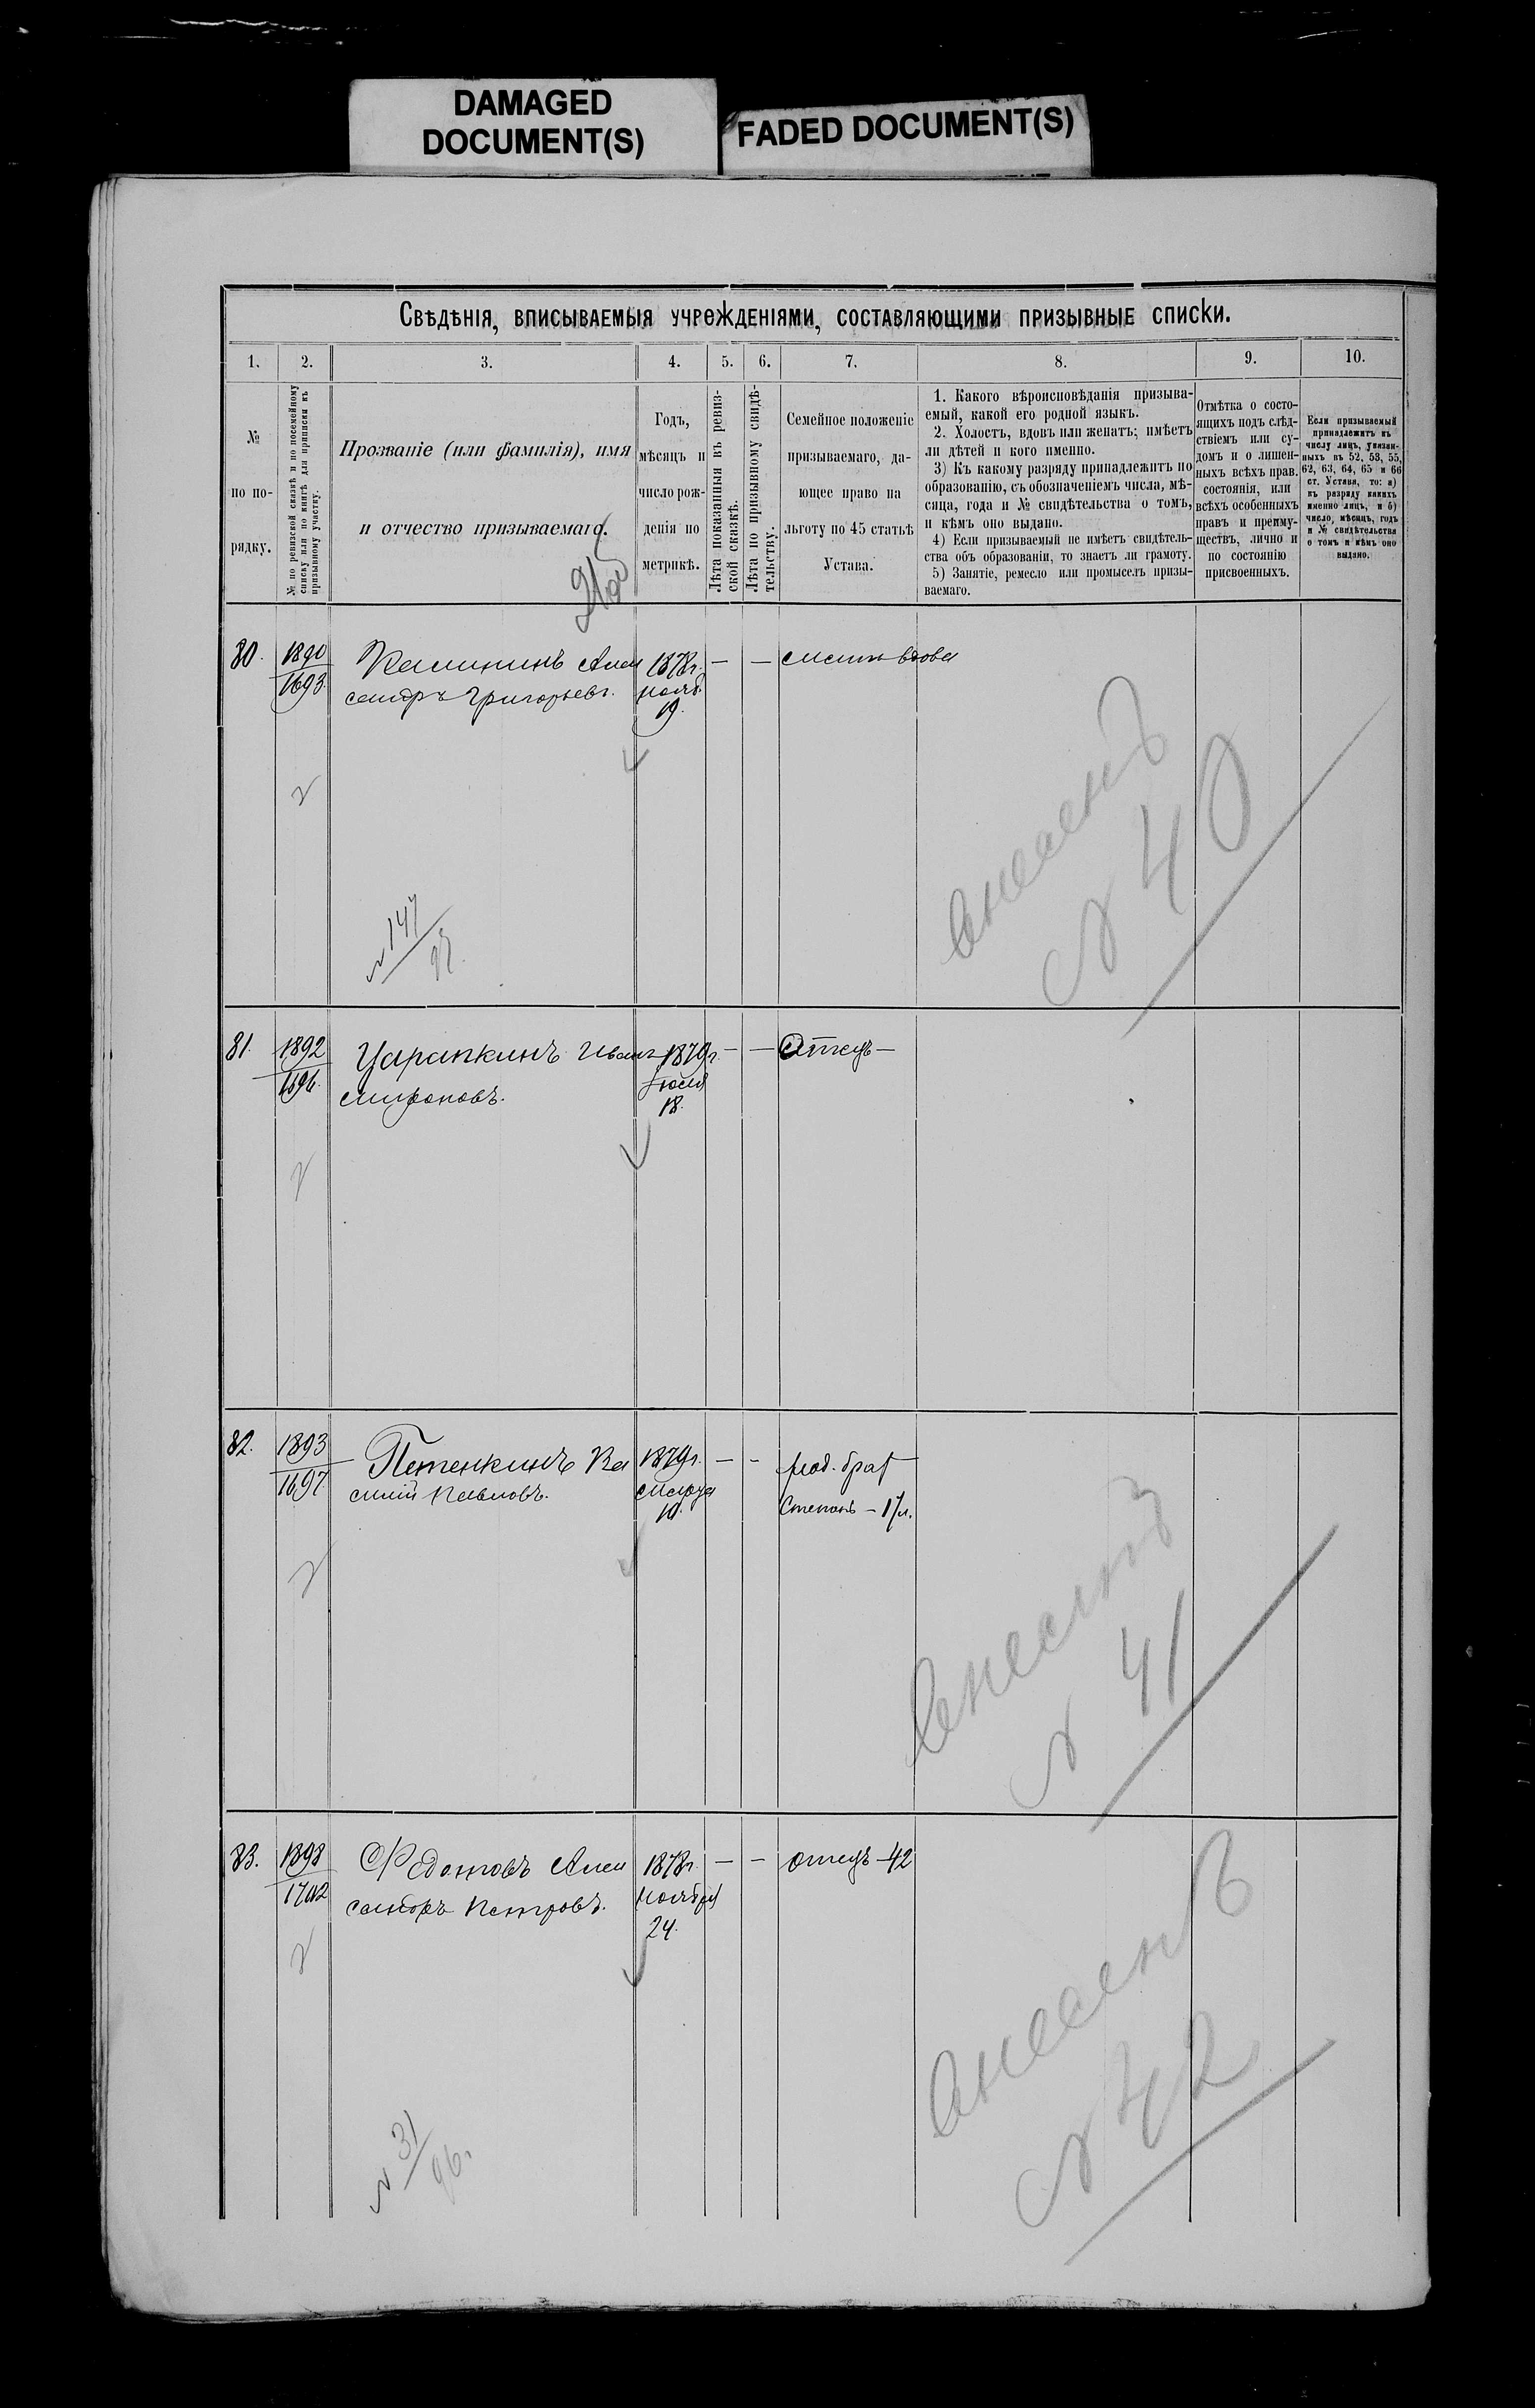 DAMAGED
DOCUMENT(S)
FADED DOCUMENT(S)
Свѣдѣнія, вписываемыя учрежденіями, составляющими призывные списки.
1.
2.
3.
4.
5.
6.
7.
8.
9.
10.
№
по по-
рядку.
№ по ревизской сказкѣ и по посемейному
списку или по книгѣ для приписки къ
призывному участку.
Прозваніе (или фамилія), имя
и отчество призываемаго.
Годъ,
мѣсяцъ и
число рож-
денія по
метрикѣ.
Лѣта показанныя въ ревиз-
ской сказкѣ.
Лѣта по призывному свидѣ-
тельству.
Семейное положеніе
призываемаго, да-
ющее право на
льготу по 45 статьѣ
Устава.
1. Какого вѣроисповѣданія призыва-
емый, какой его родной языкъ.
2. Холостъ, вдовъ или женатъ; имѣетъ
ли дѣтей и кого именно.
3) Къ какому разряду принадлежитъ по
образованію, съ обозначеніемъ числа, мѣ-
сяца, года и № свидѣтельства о томъ,
и кѣмъ оно выдано.
4) Если призываемый не имѣетъ свидѣтель-
ства объ образованіи, то знаетъ ли грамоту.
5) Занятіе, ремесло или промыселъ призы-
ваемаго.
Отмѣтка о состо-
ящихъ подъ слѣд-
ствіемъ или су-
домъ и о лишен-
ныхъ всѣхъ прав.
состоянія, или
всѣхъ особенныхъ
правъ и преиму-
ществъ, лично и
по состоянію
присвоенныхъ.
Если призываемый
принадлежитъ къ
числу лицъ, указан-
ныхъ въ 52, 53, 55,
62, 63, 64, 65 и 66
ст. Устава, то: а)
къ разряду какихъ
именно лицъ, и б)
число, мѣсяцъ, годъ
и № свидѣтельства
о томъ и кѣмъ оно
выдано.
80. 1890 Калининъ Алек 1878г. — — мать вдова
1693. сандръ Григорьевъ. нояб.
19.
внесенъ
№ 40
№ 147
97.
81. 1892 Царапкинъ Иванъ 1879г. — — Отецъ —
1696. Мироновъ. Іюля
18.
82. 1893 Петенкинъ Ва 1879г. — — род. братъ
1697. силій Павловъ. Марта Степанъ — 17 л.
10.
внесенъ
№ 41
83. 1898 Федотовъ Алек 1878г. — — отецъ — 42
1702 сандръ Петровъ. ноября
24.
внесенъ
№ 42
№ 31
96.